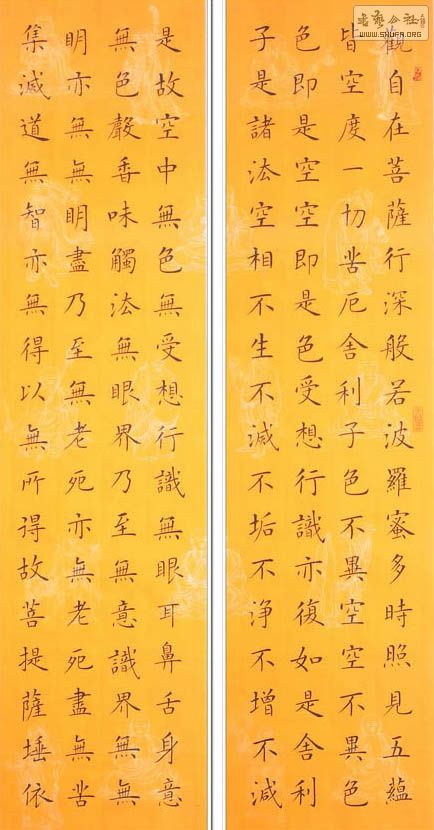 觀自在菩薩行深般若波羅蜜多時照見五蘊
皆空度一切苦厄舍利子色不異空空不異色
色即是空空即是色受想行識亦復如是舍利
子是諸法空相不生不滅不垢不淨不增不減
是故空中無色無受想行識無眼耳鼻舌身意
無色聲香味觸法無眼界乃至無意識界無無
明亦無無明盡乃至無老死亦無老死盡無苦
集滅道無智亦無得以無所得故菩提薩埵依
書藝公社
WWW.SHUFA.ORG